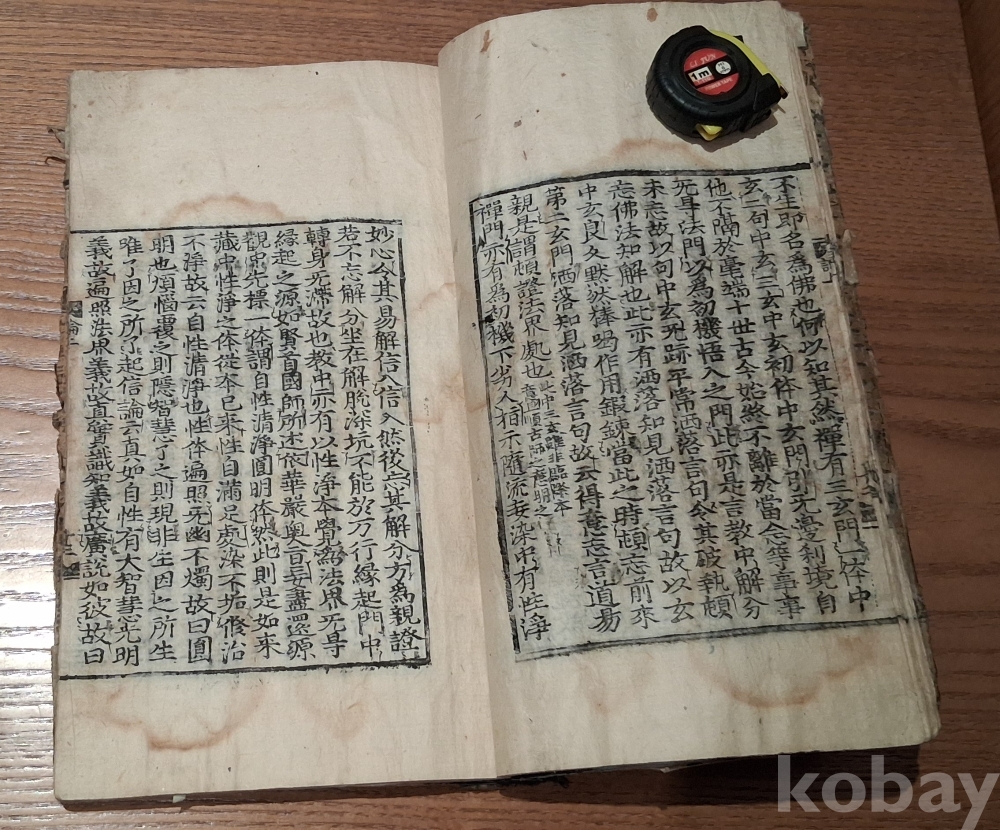 不生即名為佛也何以知其然禪有三玄門一体中
玄二句中玄三玄中玄初体中玄門引无邊刹境自
他不隔於毫端十世古今始終不離於當念等事事
无㝵法門以為初機悟入之門此亦是言教中解分
未忘故以句中玄无跡平常洒落言句令其破執頓
忘佛法知解也此亦有洒落知見洒落言句故以玄
中玄良久默然棒喝作用鍛鍊當此之時頓忘前來
第二玄門洒落知見洒落言句故云得意忘言道易
親是謂頓證法界處也
此中三玄
禪門亦有為初機下劣人指示隨流妄染中有性淨
妙心令其易解信入信入然後忘其解分方為親證
若不忘解分坐在解脫深坑不能於万行緣起門中
轉身无滯故也教中亦有以性淨本覺為法界无㝵
緣起之源如賢首國師所述依華嚴奧旨妄盡還源
觀帘先標一体謂自性清淨圓明体然此則是如來
藏中性淨之体從本已來性自滿足處染不垢修治
不淨故云自性清淨也性体遍照无幽不燭故曰圓
明也煩惱覆之則隱智慧了之則現非生因之所生
唯了因之所了起信論云真如自性有大智慧光明
義故遍照法界義故真實識知義故廣說如彼故曰
kobay
1m